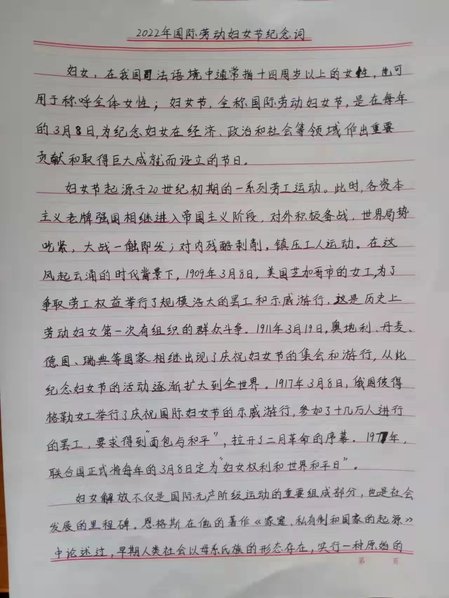 2022年国际劳动妇女节纪念词
妇女，在我国司法语境中通常指十四周岁以上的女性，也可
用于称呼全体女性；妇女节，全称国际劳动妇女节，是在每年
的3月8日，为纪念妇女在经济、政治和社会等领域作出重要
贡献和取得巨大成就而设立的节日。
妇女节起源于20世纪初期的一系列劳工运动。此时，各资本
主义老牌强国相继进入帝国主义阶段，对外积极备战，世界局势
吃紧，大战一触即发；对内残酷剥削，镇压工人运动。在这
风起云涌的时代背景下，1909年3月8日，美国芝加哥市的女工，为了
争取劳工权益举行了规模浩大的罢工和示威游行，这是历史上
劳动妇女第一次有组织的群众斗争。1911年3月19日，奥地利、丹麦、
德国、瑞典等国家相继出现了庆祝妇女节的集会和游行，从此
纪念妇女节的活动逐渐扩大到全世界。1917年3月8日，俄国彼得
格勒女工举行了庆祝国际妇女节的示威游行，参加了十几万人进行
的罢工，要求得到"面包与和平"，拉开了二月革命的序幕。1977年，
联合国正式将每年的3月8日定为"妇女权利和世界和平日"。
妇女解放不仅是国际无产阶级运动的重要组成部分，也是社会
发展的里程碑。恩格斯在他的著作《家庭、私有制和国家的起源》
中论述过，早期人类社会以母系氏族的形态存在，实行一种原始的
第 页